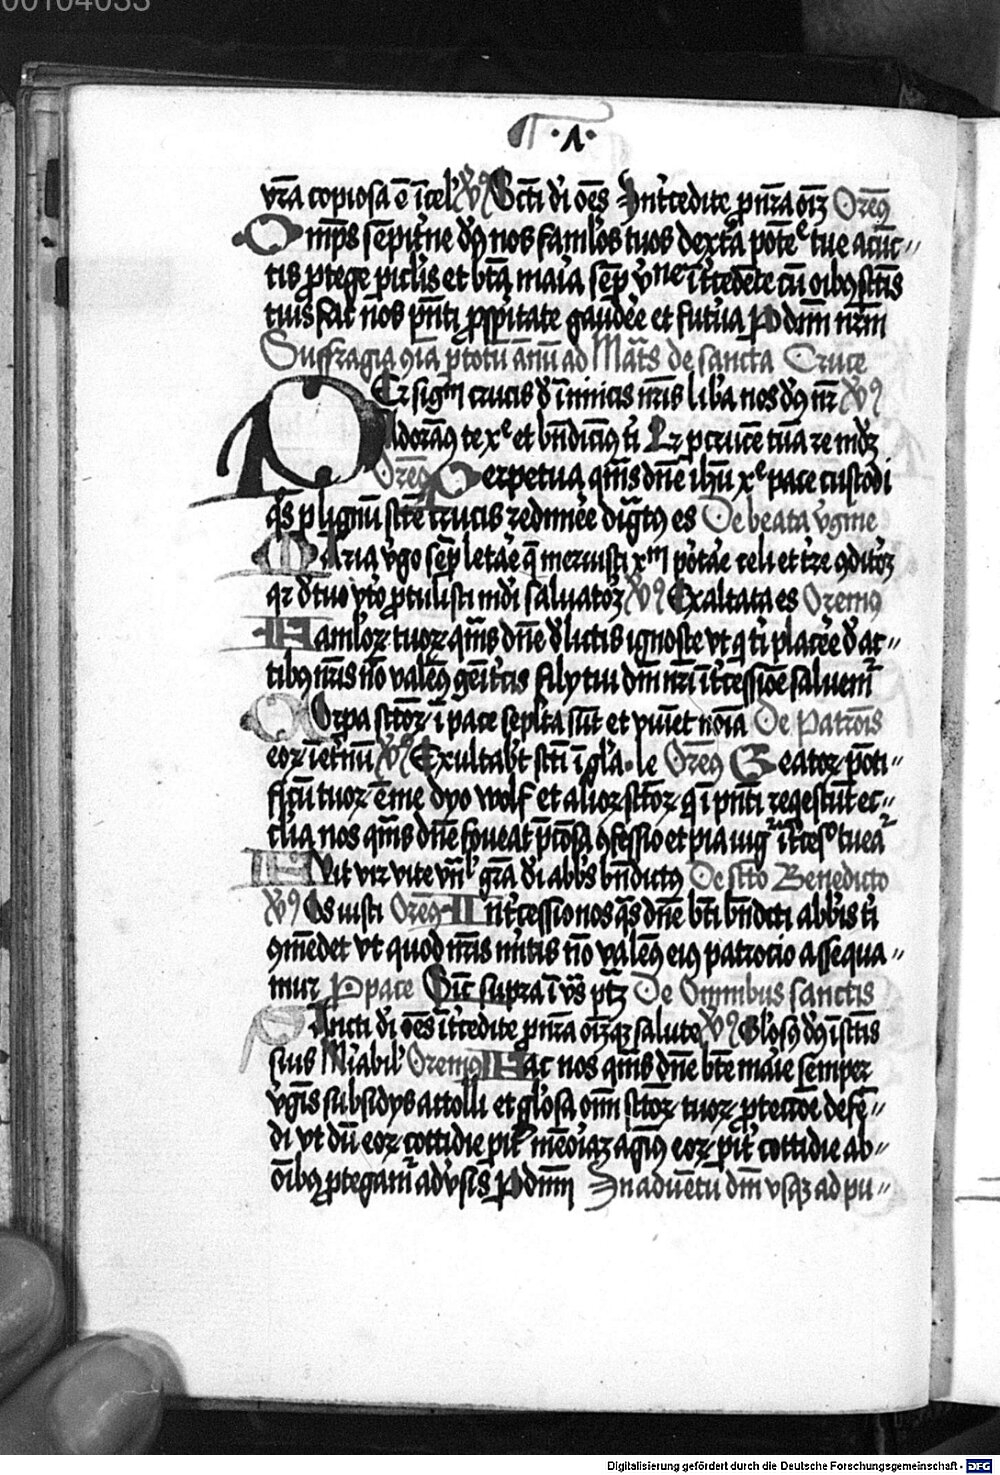 00104033
·1·
vr̄a copiosa ē ī cel' V̄ Sc̄ti dī oēs Int'cedite p nr̄a oīꝫ Orem9
Omp̄s sēpit'ne d's nos famlos tuos dext'a potē tue a cūc//
tis ptege piclis et bt̄a maīa sēp v'ne īt'cedēte cū oībꝫ sctīs
tuis fac nos pn̄ti pspitate gaudēe et futura P dn̄m nr̄m
Suffragia 9īa p totū ānū ad Māt's de sancta Cruce
PEr sigm crucis d' īnimicis nr̄is lib'a nos d's nr̄ V̄
Adoram9 te xe et bn̄dicim9 ti Qr p crucē tuā re mdꝫ
Orem9 Perpetua qm̄s dn̄e ihū xe pace custodi
qs p lignū sctē crucis redimēe dignt9 es De beata v'gine
MAria v'go sēp letāe q̄ meruisti xm̄ portāe celi et t're 9ditorꝫ
qr d' tuo vt'o ptulisti mdī saluatorꝫ V̄ Exaltata es Orem9
Famlorꝫ tuorꝫ qm̄s dn̄e d'lictis ignosce vt q ti placēe d' ac//
tibꝫ nr̄is nō valem9 geīt'cis filij tui dm̄ nr̄i īt'cessiōe saluem'
COrpa sctorꝫ ī pace seplta sūt et viuēt noīa De Patronis
eorꝫ ī et'nū V̄ Exultabt sctī ī gla·le Orem9 Beatorꝫ pōti//
ficū tuorꝫ ēme dyo wolf et aliorꝫ sctorꝫ q ī pn̄ti reqescūt ec//
clia nos qm̄s dn̄e foueat p̄ciosa 9fessio et pia iug' īt'cess' tuea'
FVit vir vite vn̄' gr̄a dī abb's bn̄dict9 De scto Benedicto
V̄ Os iusti Orem9 Int'cessio nos qs dn̄e bt̄i bn̄dcti abb'is ti
9mēdet vt quod nr̄is mitis nō valem9 ei9 patrocio assequa//
mur P pace Sic supra ī vs ptꝫ De Omnibus sanctis
SAncti dī oēs īt'cedite p nr̄a oīꝫqꝫ salute V̄ Glos9 d's ī sctīs
suis Mīabil' Orem9 Fac nos qm̄s dn̄e bt̄e maīe semper
v'gīs subsidijs attolli et glosa om̄ sctorꝫ tuorꝫ ptectiōe defē//
di vt dū eorꝫ cottidie pit' mēoīaꝫ agim9 eorꝫ pit' cottidie ab//
oībꝫ ptegam' adv'sis P dn̄m In aduētu dm̄ vsqꝫ ad pu//
Digitalisierung gefördert durch die Deutsche Forschungsgemeinschaft - DFG